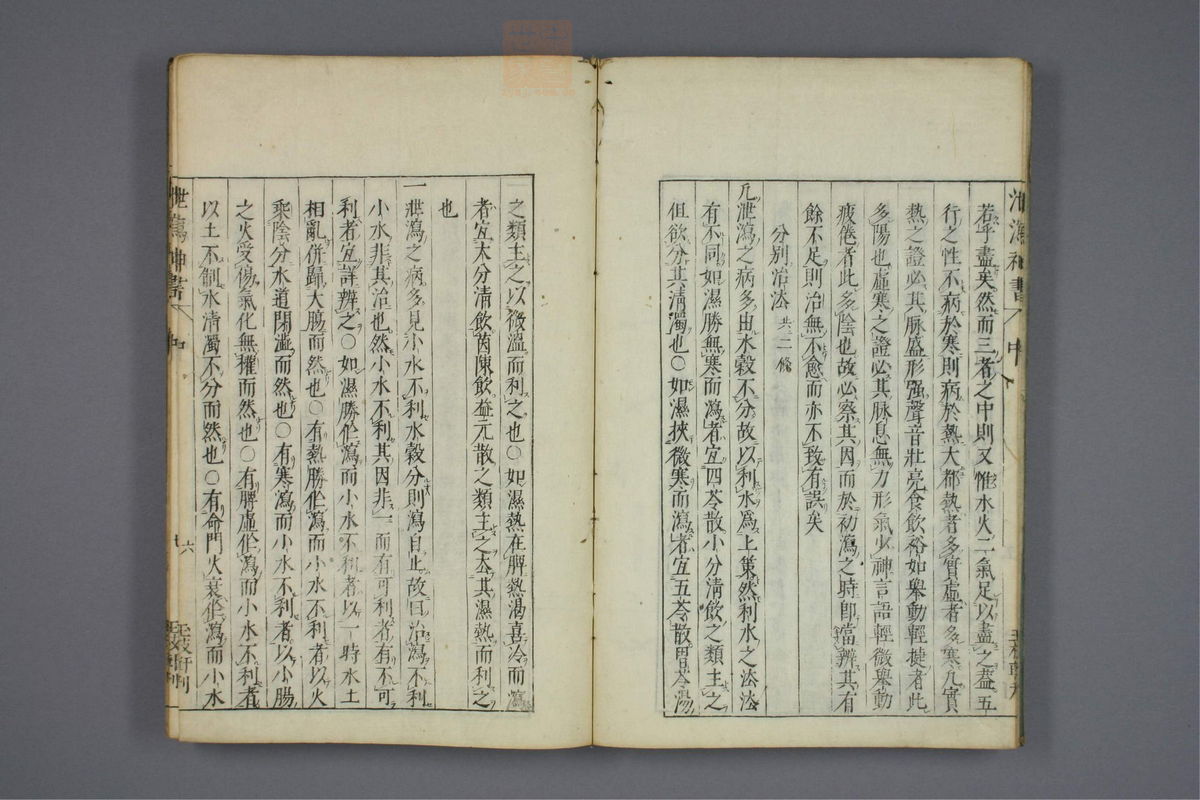 若乎盡矣然而三者之中則又惟水火二氣足以盡之蓋五
行之性不病於寒則病於熱大都熱者多實虛者多寒凡實
熱之證必其脉盛形强聲音壯亮食飲裕如舉動輕捷者此
多陽也虛寒之證必其脉息無力形氣少神言語輕微舉動
疲倦者此多陰也故必察其因而於初瀉之時即當辨其有
餘不足則治無不愈而亦不致有誤矣
分別治法 共二條
凡泄瀉之病多由水穀不分故以利水爲上策然利水之法法
有不同如濕勝無寒而瀉者宜四苓散小分清飲之類主之
但欲分其清濁也○如濕挾微寒而瀉者宜五苓散胃苓湯
之類主之以微溫而利之也○如濕熱在脾熱渴喜冷而瀉
者宜大分清飲茵陳飲益元散之類主之去其濕熱而利之
也
一泄瀉之病多見小水不利水穀分則瀉自止故曰治瀉不利
小水非其治也然小水不利其因非一而有可利者有不可
利者宜詳辨之○如濕勝作瀉而小水不利者以一時水土
相亂併歸大腸而然也○有熱勝作瀉而小水不利者以火
乘陰分水道閉澁而然也○有寒瀉而小水不利者以小腸
之火受傷氣化無權而然也○有脾虛作瀉而小水不利者
以土不制水清濁不分而然也○有命門火衰作瀉而小水
泄瀉神書 中